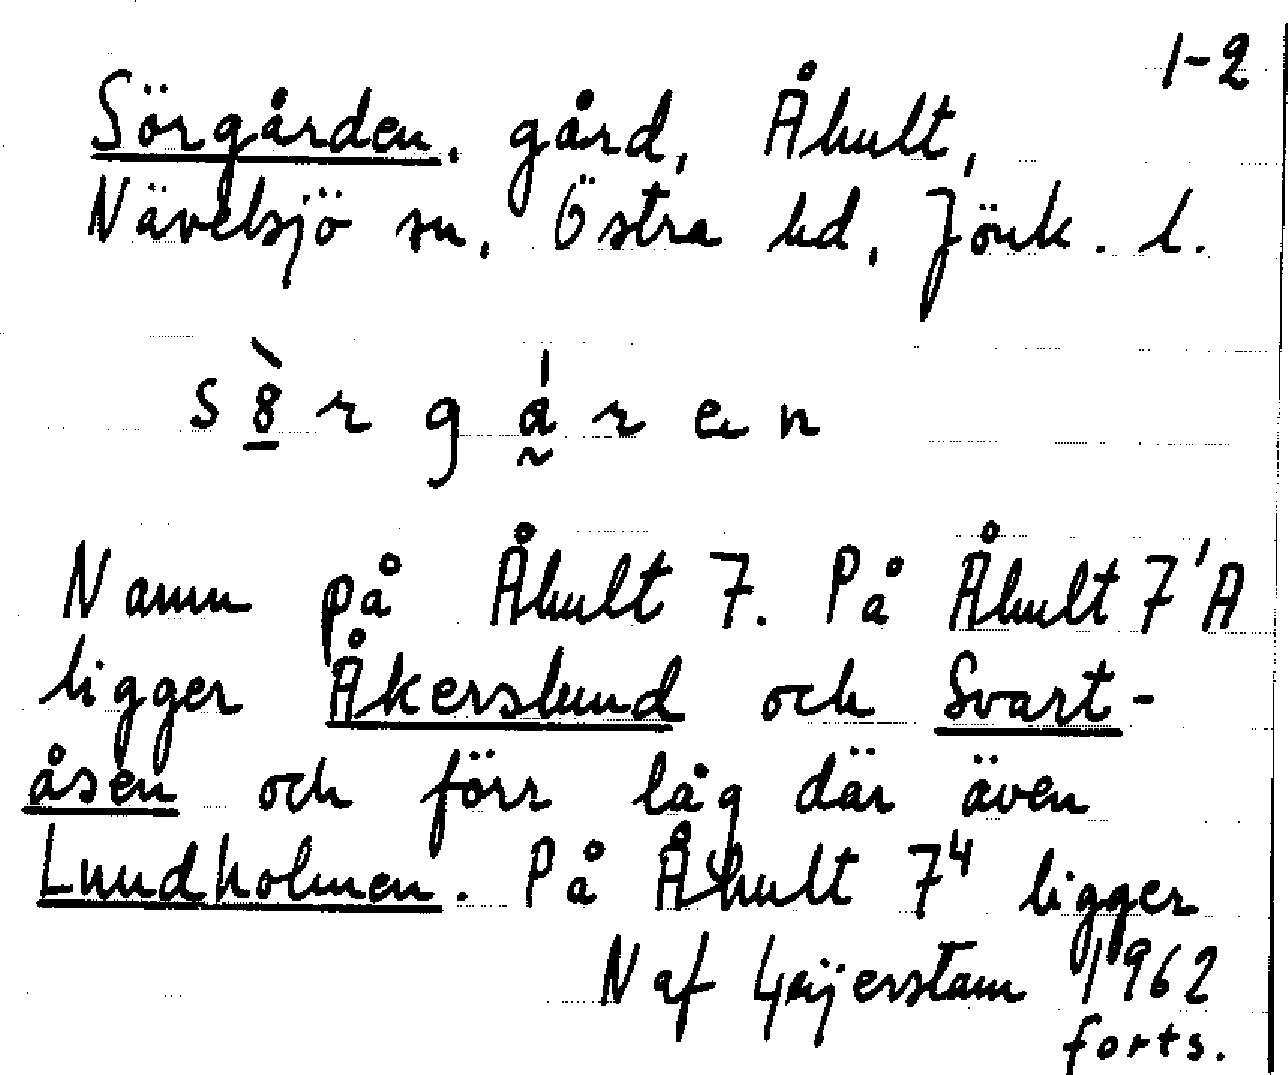 1-2
Sörgården, gård, Åhult,
Nävelsjö sn, Östra hd, Jönk. l.
s ȍ r g å r e n
Namn på Åhult 7. På Åhult 7¹A
ligger Åkerslund och Svart-
åsen och förr låg där även
Lundholmen. På Åhult 7⁴ ligger
N af Geijerstam 1962
forts.